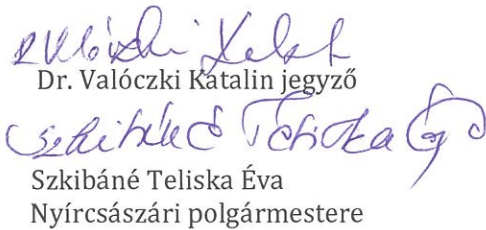 Dr. Valóczki Katalin jegyző
Szkibáné Teliska Éva
Nyírcsászári polgármestere